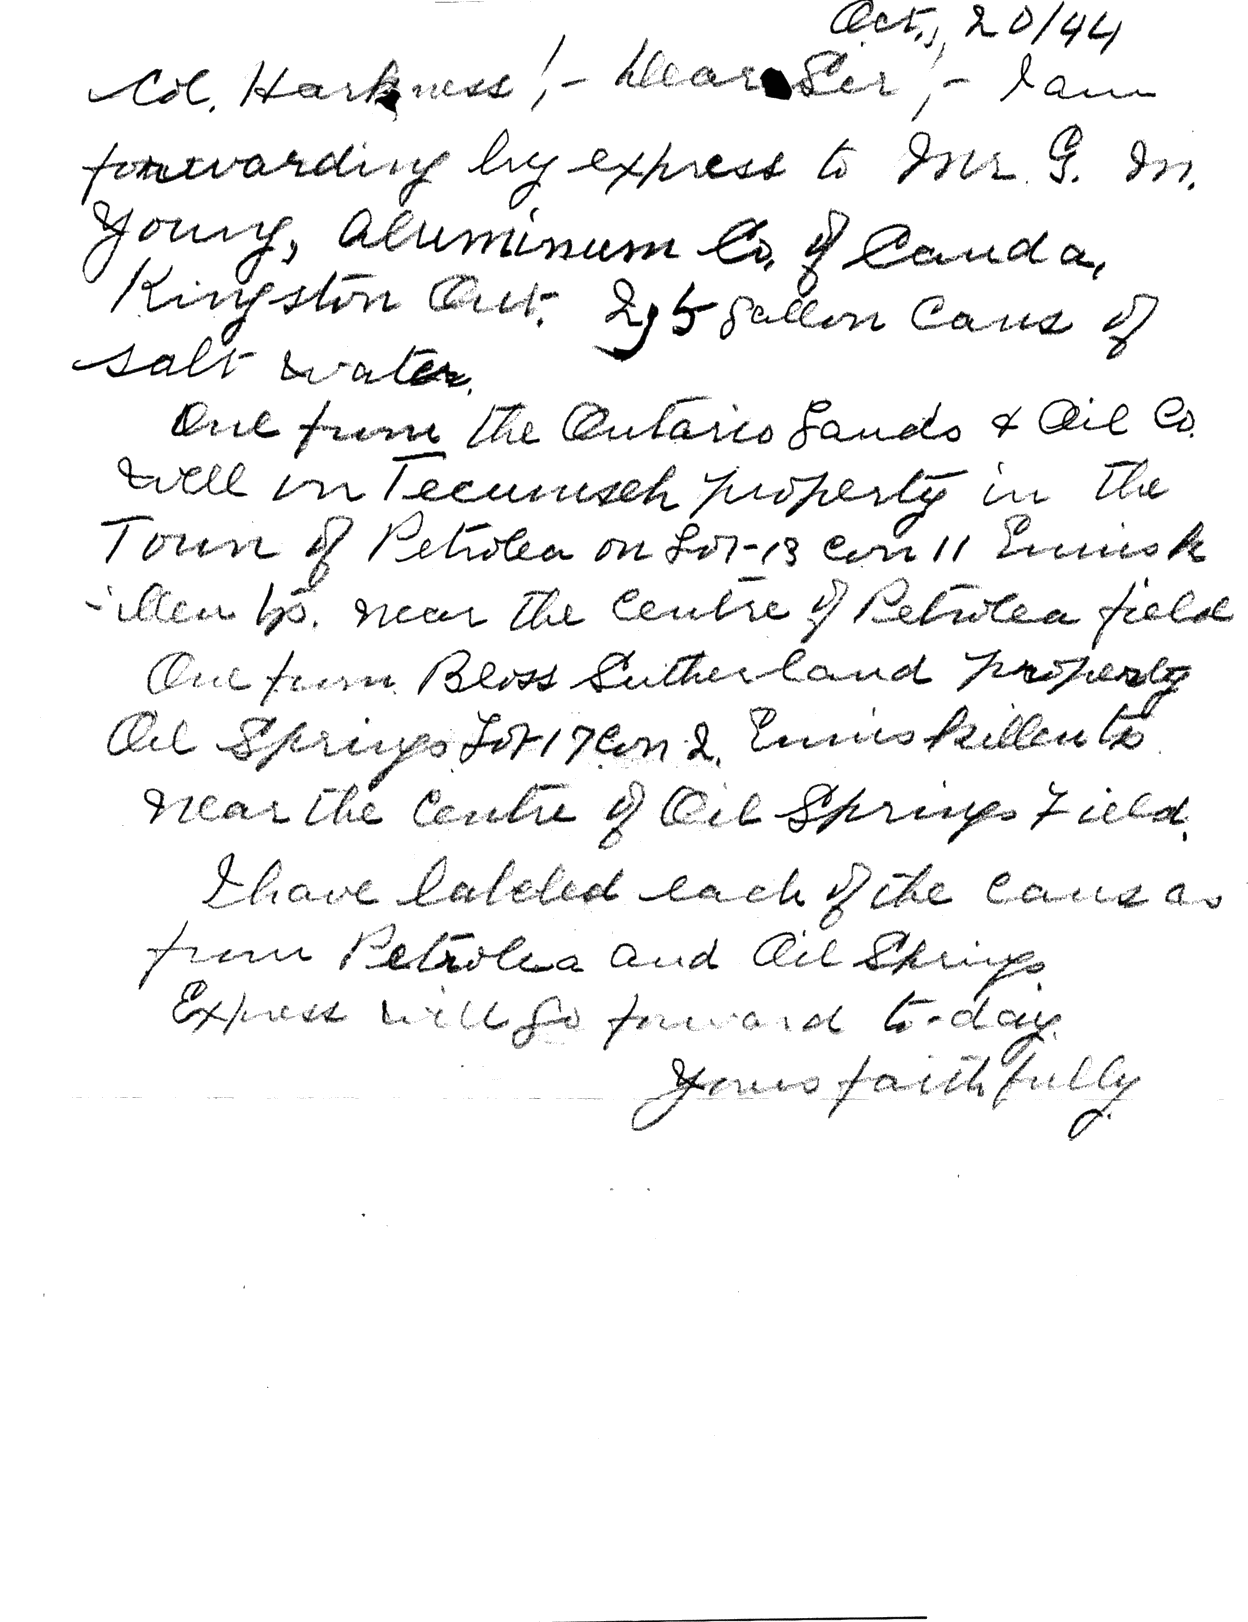 Oct., 20/44
Col. Harkness!- Dear Sir!- I am
forwarding by express to Mr. G. M.
Young, Aluminum Co. of Canda,
Kingston Ont. 2, 5 gallon cans of
salt water.
One from the Ontario Lands & Oil Co.
well on Tecumseh property in the
Town of Petrolea on Lot-13 Con 11 Ennisk
-illen tp. near the Centre of Petrolea field
One from Bloss Sutherland property
Oil Springs Lot 17 Con 2. Enniskillen tp
near the Centre of Oil Springs Field.
I have labeled each of the cans as
from Petrolea and Oil Springs
Express will go forward to-day.
Yours faithfully